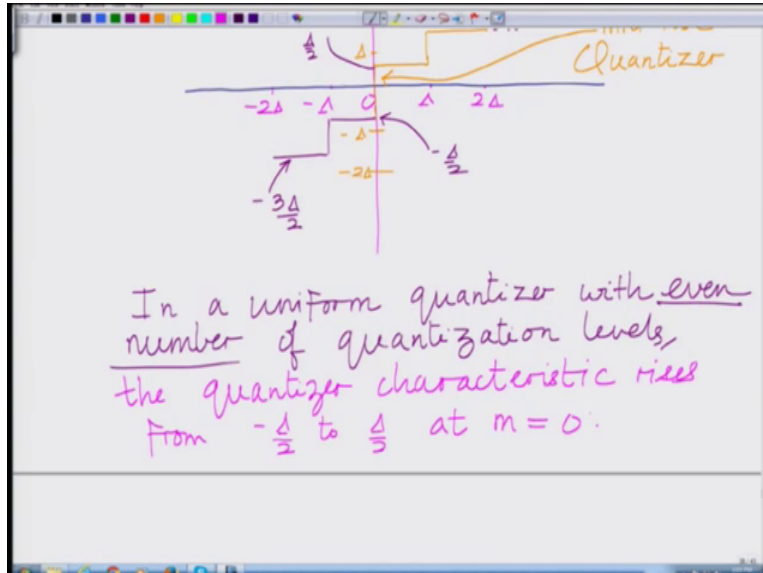 Δ/2
Δ
Quantizer
-2Δ -Δ 0 Δ 2Δ
-Δ
-Δ/2
-2Δ
-3Δ/2
In a uniform quantizer with even
number of quantization levels,
the quantizer characteristic rises
from -Δ/2 to Δ/2 at m = 0.